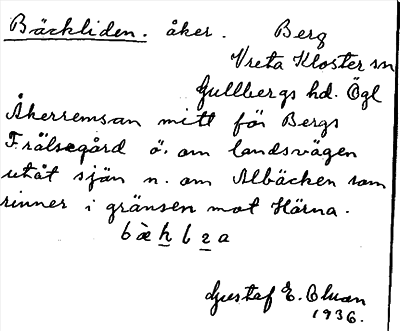 Bäckliden. åker. Berg
Vreta Kloster sn
Gullbergs hd. Ögl
Åkerremsan mitt för Bergs
Frälsegård ö. om landsvägen
utåt sjön n. om Albäcken som
rinner i gränsen mot Härna.
Gustaf E. Oluan
1936.